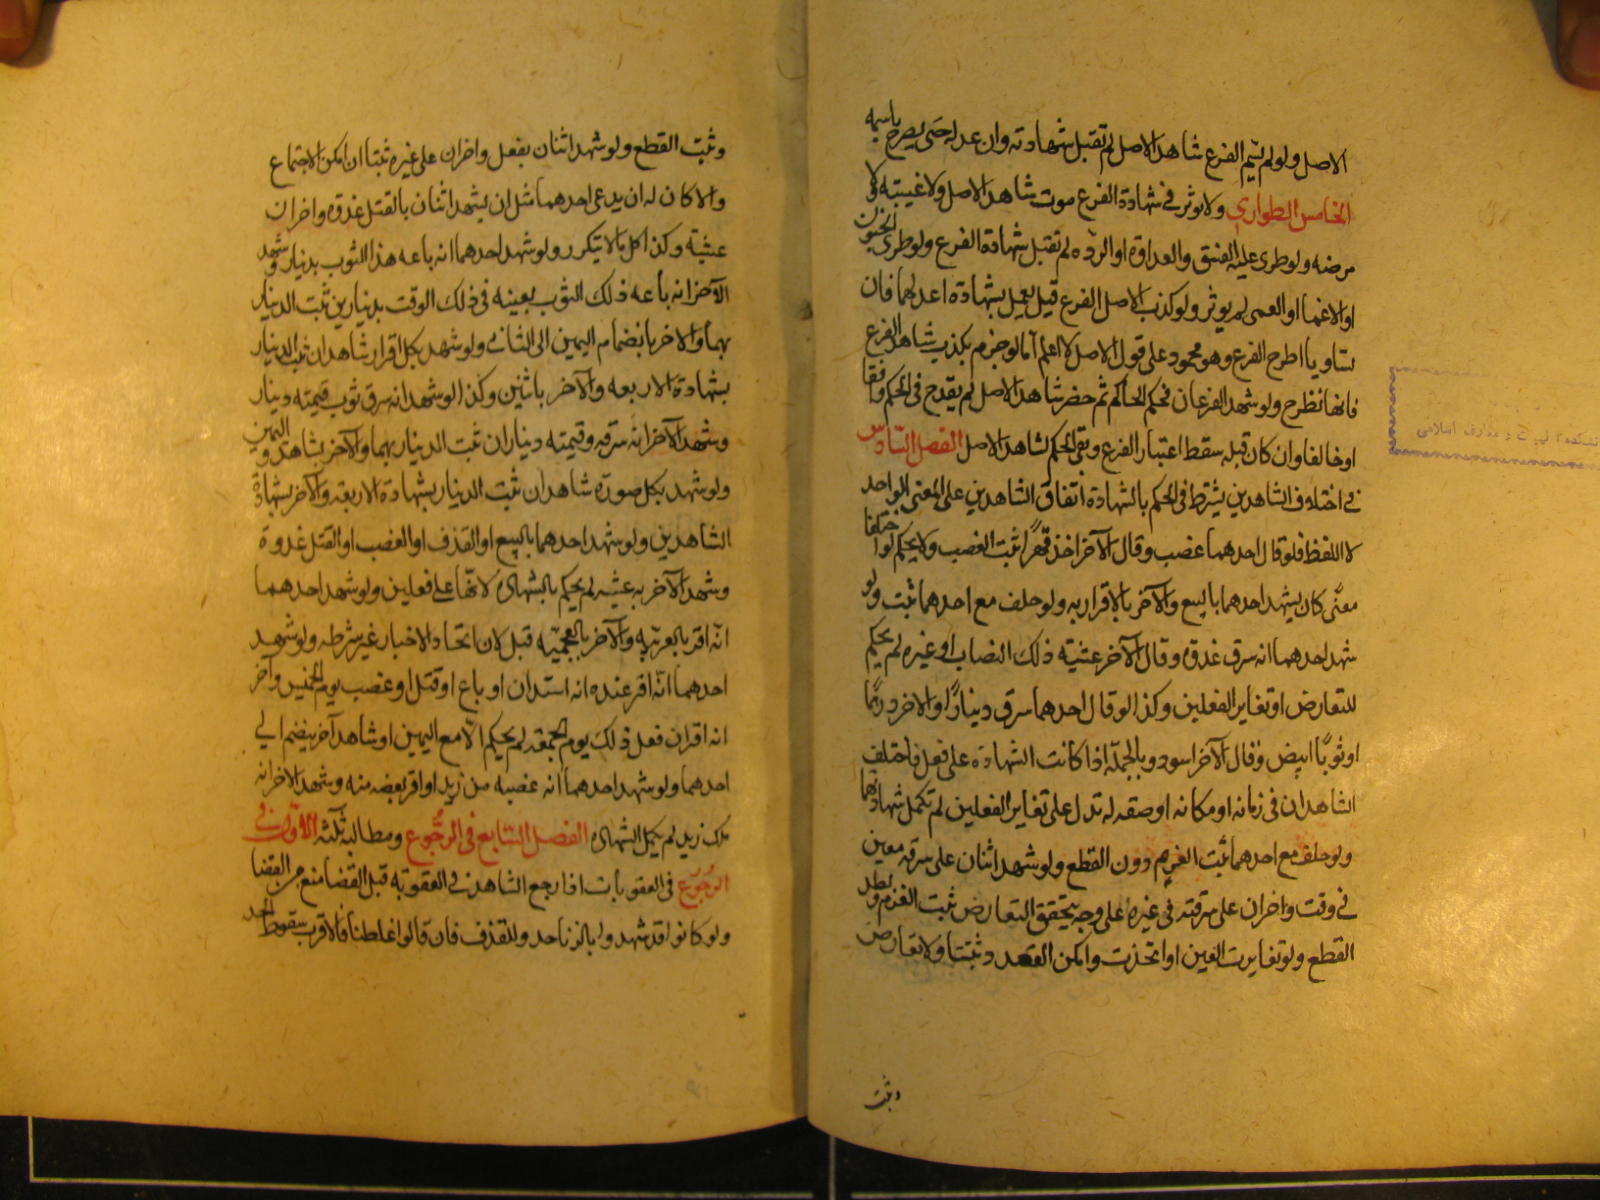 الاصل ولو لم يسم الفرع شاهد الاصل لم تقبل شهادته وان عدله حتى يصرح باسمه
الخامس الطواري ولا يوثر في شهادة الفرع موت شاهد الاصل ولا غيبته ولا
مرضه ولو طرى عليه الفسق والعداوة او الردة لم تقبل شهادة الفرع ولو طرى الجنون
او الاغما او العمى لم يوثر ولو كذب الاصل الفرع قيل يعمل بشهادة اعدلهما فان
تساويا اطرح الفرع وهو محمول على قول الاصل لا اعلم اما لو جزم بكذب شاهد الفرع
فانها تطرح ولو شهد الفرعان فحكم الحاكم ثم حضر شاهد الاصل لم يقدح في الحكم وافقا
او خالفا وان كان قبله سقط اعتبار الفرع وبقى الحكم لشاهد الاصل الفصل السادس
في اختلاف الشاهدين يشترط في الحكم بالشهادة اتفاق الشاهدين على المعنى الواحد
لا اللفظ فلو قال احدهما غصب وقال الآخر اخذ قهرًا ثبت الغصب ولا يحكم لو اختلفا
معنًى كان يشهد احدهما بالبيع والآخر بالاقرار به ولو حلف مع احدهما ثبت ولو
شهد احدهما انه سرق غدوة وقال الآخر عشية ذلك النصاب او غيره لم يحكم
للتعارض او تغاير الفعلين وكذا لو قال احدهما سرق دينارًا والاخر درهمًا
او ثوبًا ابيض وقال الآخر اسود وبالجملة اذا كانت الشهادة على فعل فاختلف
الشاهدان في زمانه او مكانه او صفة له تدل على تغاير الفعلين لم تكمل شهادتهما
ولو حلف مع احدهما ثبت الغرم دون القطع ولو شهد اثنان على سرقة معين
في وقت واخران على سرقته في غيره على وجه يتحقق التعارض ثبت الغرم وبطل
القطع ولو تغايرت العين او اتحدت وامكن التعدد ثبتتا ولا تعارض
وثبت
وثبت القطع ولو شهد اثنان بفعل واخران على غيره ثبتا ان امكن الاجتماع
والا كان له ان يدعى احدهما مثل ان يشهد اثنان بالقتل غدوة واخران
عشية وكذا كل ما لا يتكرر ولو شهد احدهما انه باعه هذا الثوب بدينار وشهد
الآخر انه باعه ذلك الثوب بعينه في ذلك الوقت بدينارين ثبت الدينار
بهما والاخر بانضمام اليمين الى الثاني ولو شهد بكل اقرار شاهدان ثبت الدينار
بشهادة الاربعة والآخر باثنين وكذا لو شهد انه سرق ثوب قيمته دينار
وشهد الآخر انه سرقه وقيمته ديناران ثبت الدينار بهما والآخر بشاهد واليمين
ولو شهد بكل صورة شاهدان ثبت الدينار بشهادة الاربعة والآخر بشهادة
الشاهدين ولو شهد احدهما بالبيع او القذف او الغصب او القتل غدوة
وشهد الآخر به عشية لم يحكم بالشهادة لانها على فعلين ولو شهد احدهما
انه اقر بالعربية والآخر بالعجمية قبل لان اتحاد الاخبار غير شرط ولو شهد
احدهما انه اقر عنده انه استدان او باع او قتل او غصب يوم الخميس وآخر
انه اقر ان فعل ذلك يوم الجمعة لم يحكم الا مع اليمين او شاهد آخر ينضم الى
احدهما ولو شهد احدهما انه غصبه من زيد او اقر بغصبه منه وشهد الاخر انه
ملك زيد لم يكمل الشهادة الفصل السابع في الرجوع ومطالبه ثلثة الاول في
الرجوع في العقوبات اذا رجع الشاهد في العقوبة قبل القضا منع من القضا
ولو كانوا قد شهدوا بالزنا حد وللقذف فان قالوا غلطنا فالاقرب سقوط الحد